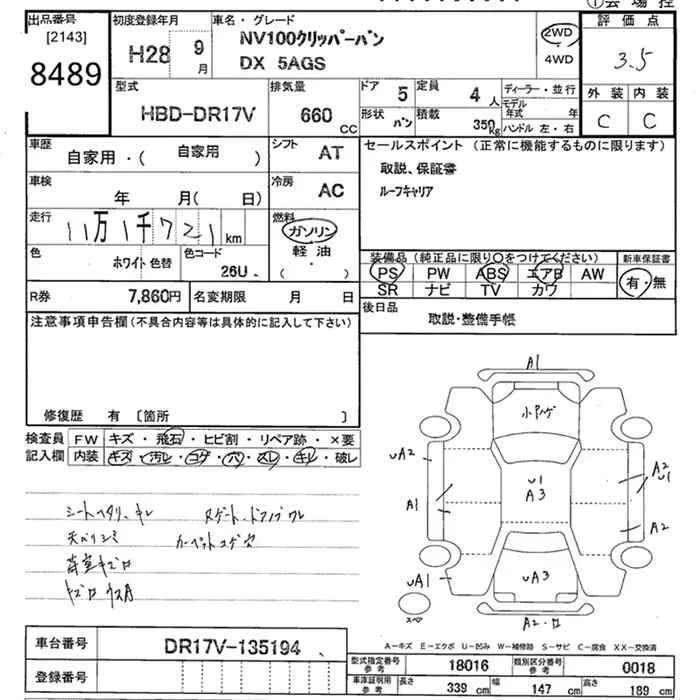 ①会場控
出品番号
[2143]
8489
初度登録年月
H28 9月
車名・グレード
NV100クリッパーバン
DX 5AGS
2WD
4WD
評価点
3.5
外装 内装
C C
型式
HBD-DR17V
排気量
660 CC
ドア 5
定員 4人
形状 バン
積載 350kg
ディーラー・並行
モデル年式 年
ハンドル 左・右
車歴
自家用・( 自家用 )
シフト AT
セールスポイント (正常に機能するものに限ります)
取説、保証書
ルーフキャリア
車検
年 月( 日)
冷房 AC
走行
11万1千721km
燃料
ガソリン
軽油
( ・ )
色
ホワイト 色替
色コード
26U
装備品(純正品に限り○をつけてください)
PS PW ABS エアB AW
SR ナビ TV カワ
新車保証書
有・無
R券 7,860円
名変期限 月 日
後日品
取説・整備手帳
注意事項申告欄(不具合内容等は具体的に記入して下さい)
修復歴 有 [箇所 ]
検査員記入欄
FW キズ・飛石・ヒビ割・リペア跡・×要
内装 キズ・汚レ・コゲ・穴・スレ・キレ・破レ
シートヘタリ、キレ
天バリシミ
カーペットコゲ穴
荷室キズロ
A1
小ハゲ
UA2
A1
UA1
U1
A3
A2
U1
A2
UA3
スペア
A2・ロ
A－キズ E－エクボ U－凹み W－補修跡 S－サビ C－腐食 XX－交換済
車台番号 DR17V-135194
登録番号
型式指定番号 参考 18016
類別区分番号 参考 0018
車庫証明用 参考
長さ 339 cm
幅 147 cm
高さ 189 cm